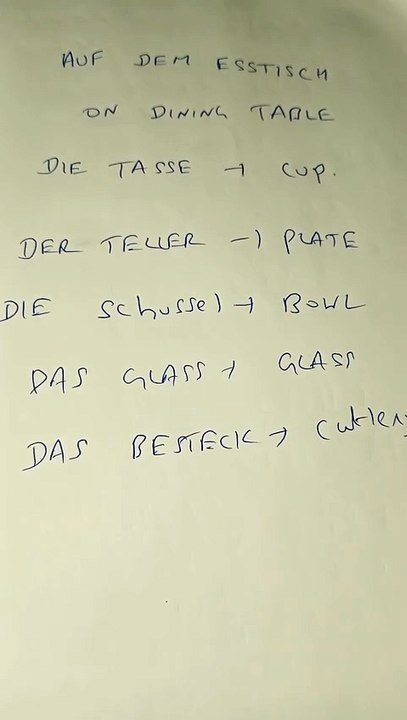 AUF DEM ESSTISCH
ON DINING TABLE
DIE TASSE → CUP.
DER TELLER → PLATE
DIE Schussel → BOWL
DAS GLASS → GLASS
DAS BESTECK → Cutlery